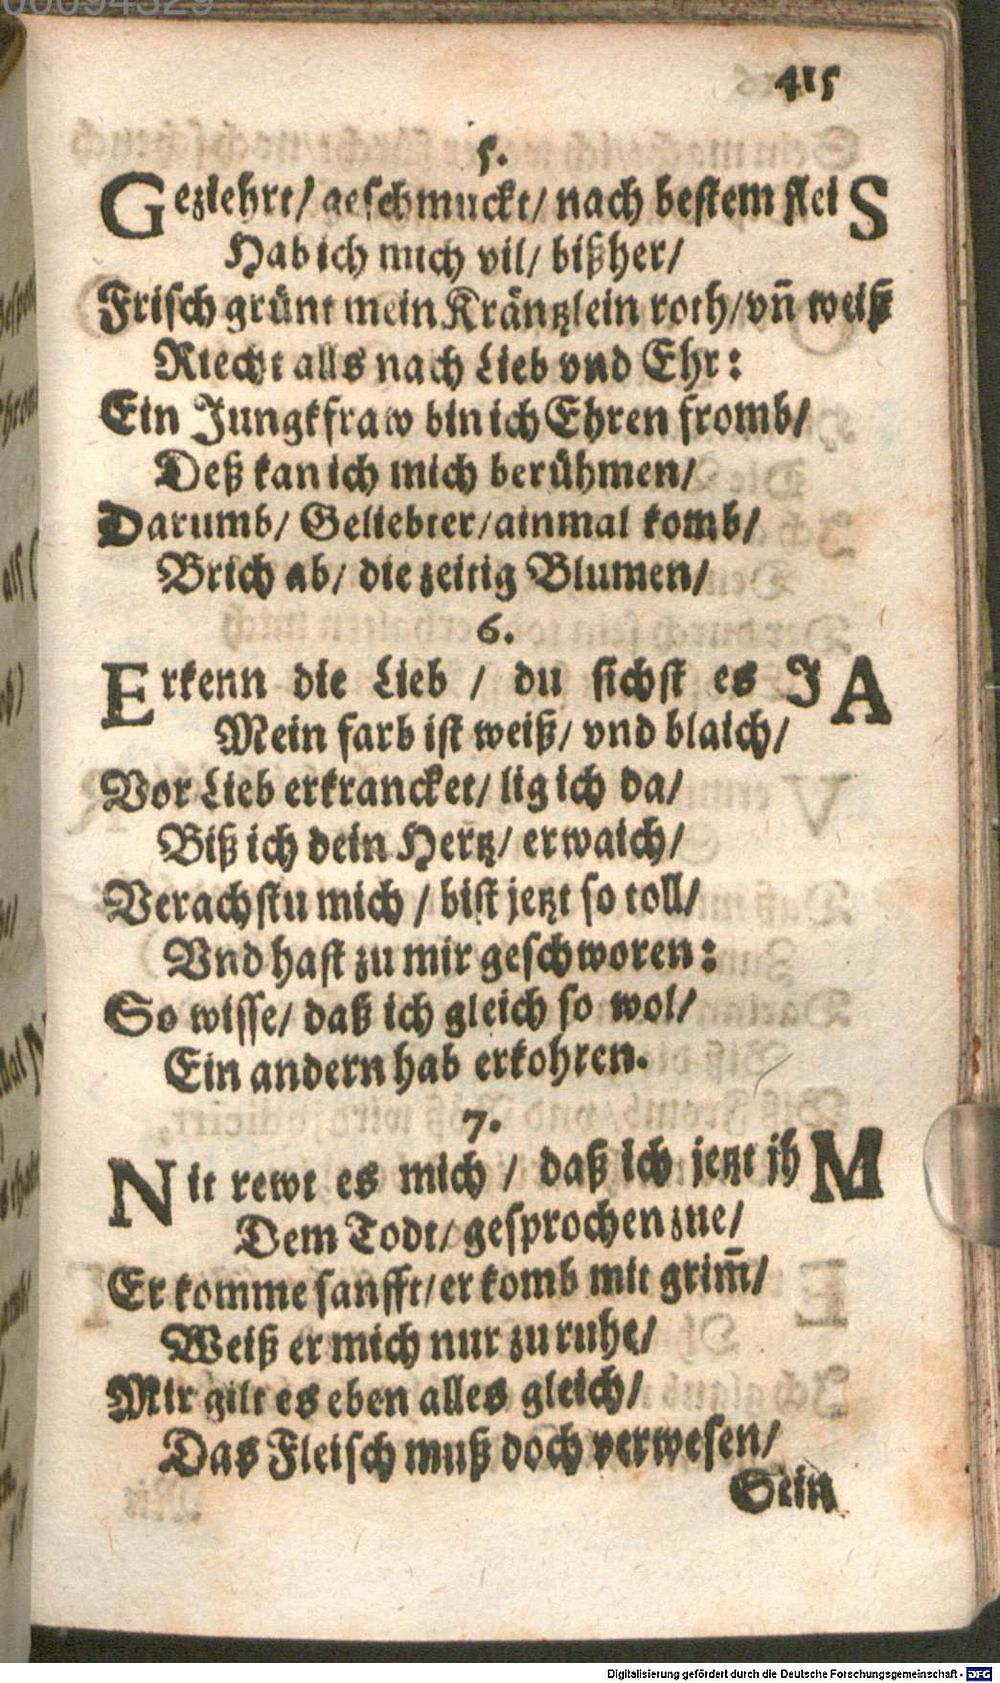 415
5.
Geziehrt/ geschmuckt/ nach bestem fleiS
Hab ich mich vil/ bißher/
Frisch grünt mein Kräntzlein roth/ vn̄ weiß
Riecht alls nach Lieb vnd Ehr:
Ein Jungkfraw bin ich Ehren fromb/
Deß kan ich mich berühmen/
Darumb/ Geliebter/ ainmal komb/
Brich ab/ die zeitig Blumen/
6.
Erkenn die Lieb / du sichst es JA
Mein farb ist weiß/ vnd blaich/
Vor Lieb erkrancket/ lig ich da/
Biß ich dein Hertz/ erwaich/
Verachstu mich / bist jetzt so toll/
Vnd hast zu mir geschworen:
So wisse/ daß ich gleich so wol/
Ein andern hab erkohren.
7.
Nit rewt es mich / daß ich jetzt jhM
Dem Todt/ gesprochen zue/
Er komme sanfft/ er komb mit grim̄/
Weiß er mich nur zu ruhe/
Mir gilt es eben alles gleich/
Das Fleisch muß doch verwesen/
Sein
Digitalisierung gefördert durch die Deutsche Forschungsgemeinschaft - DFG